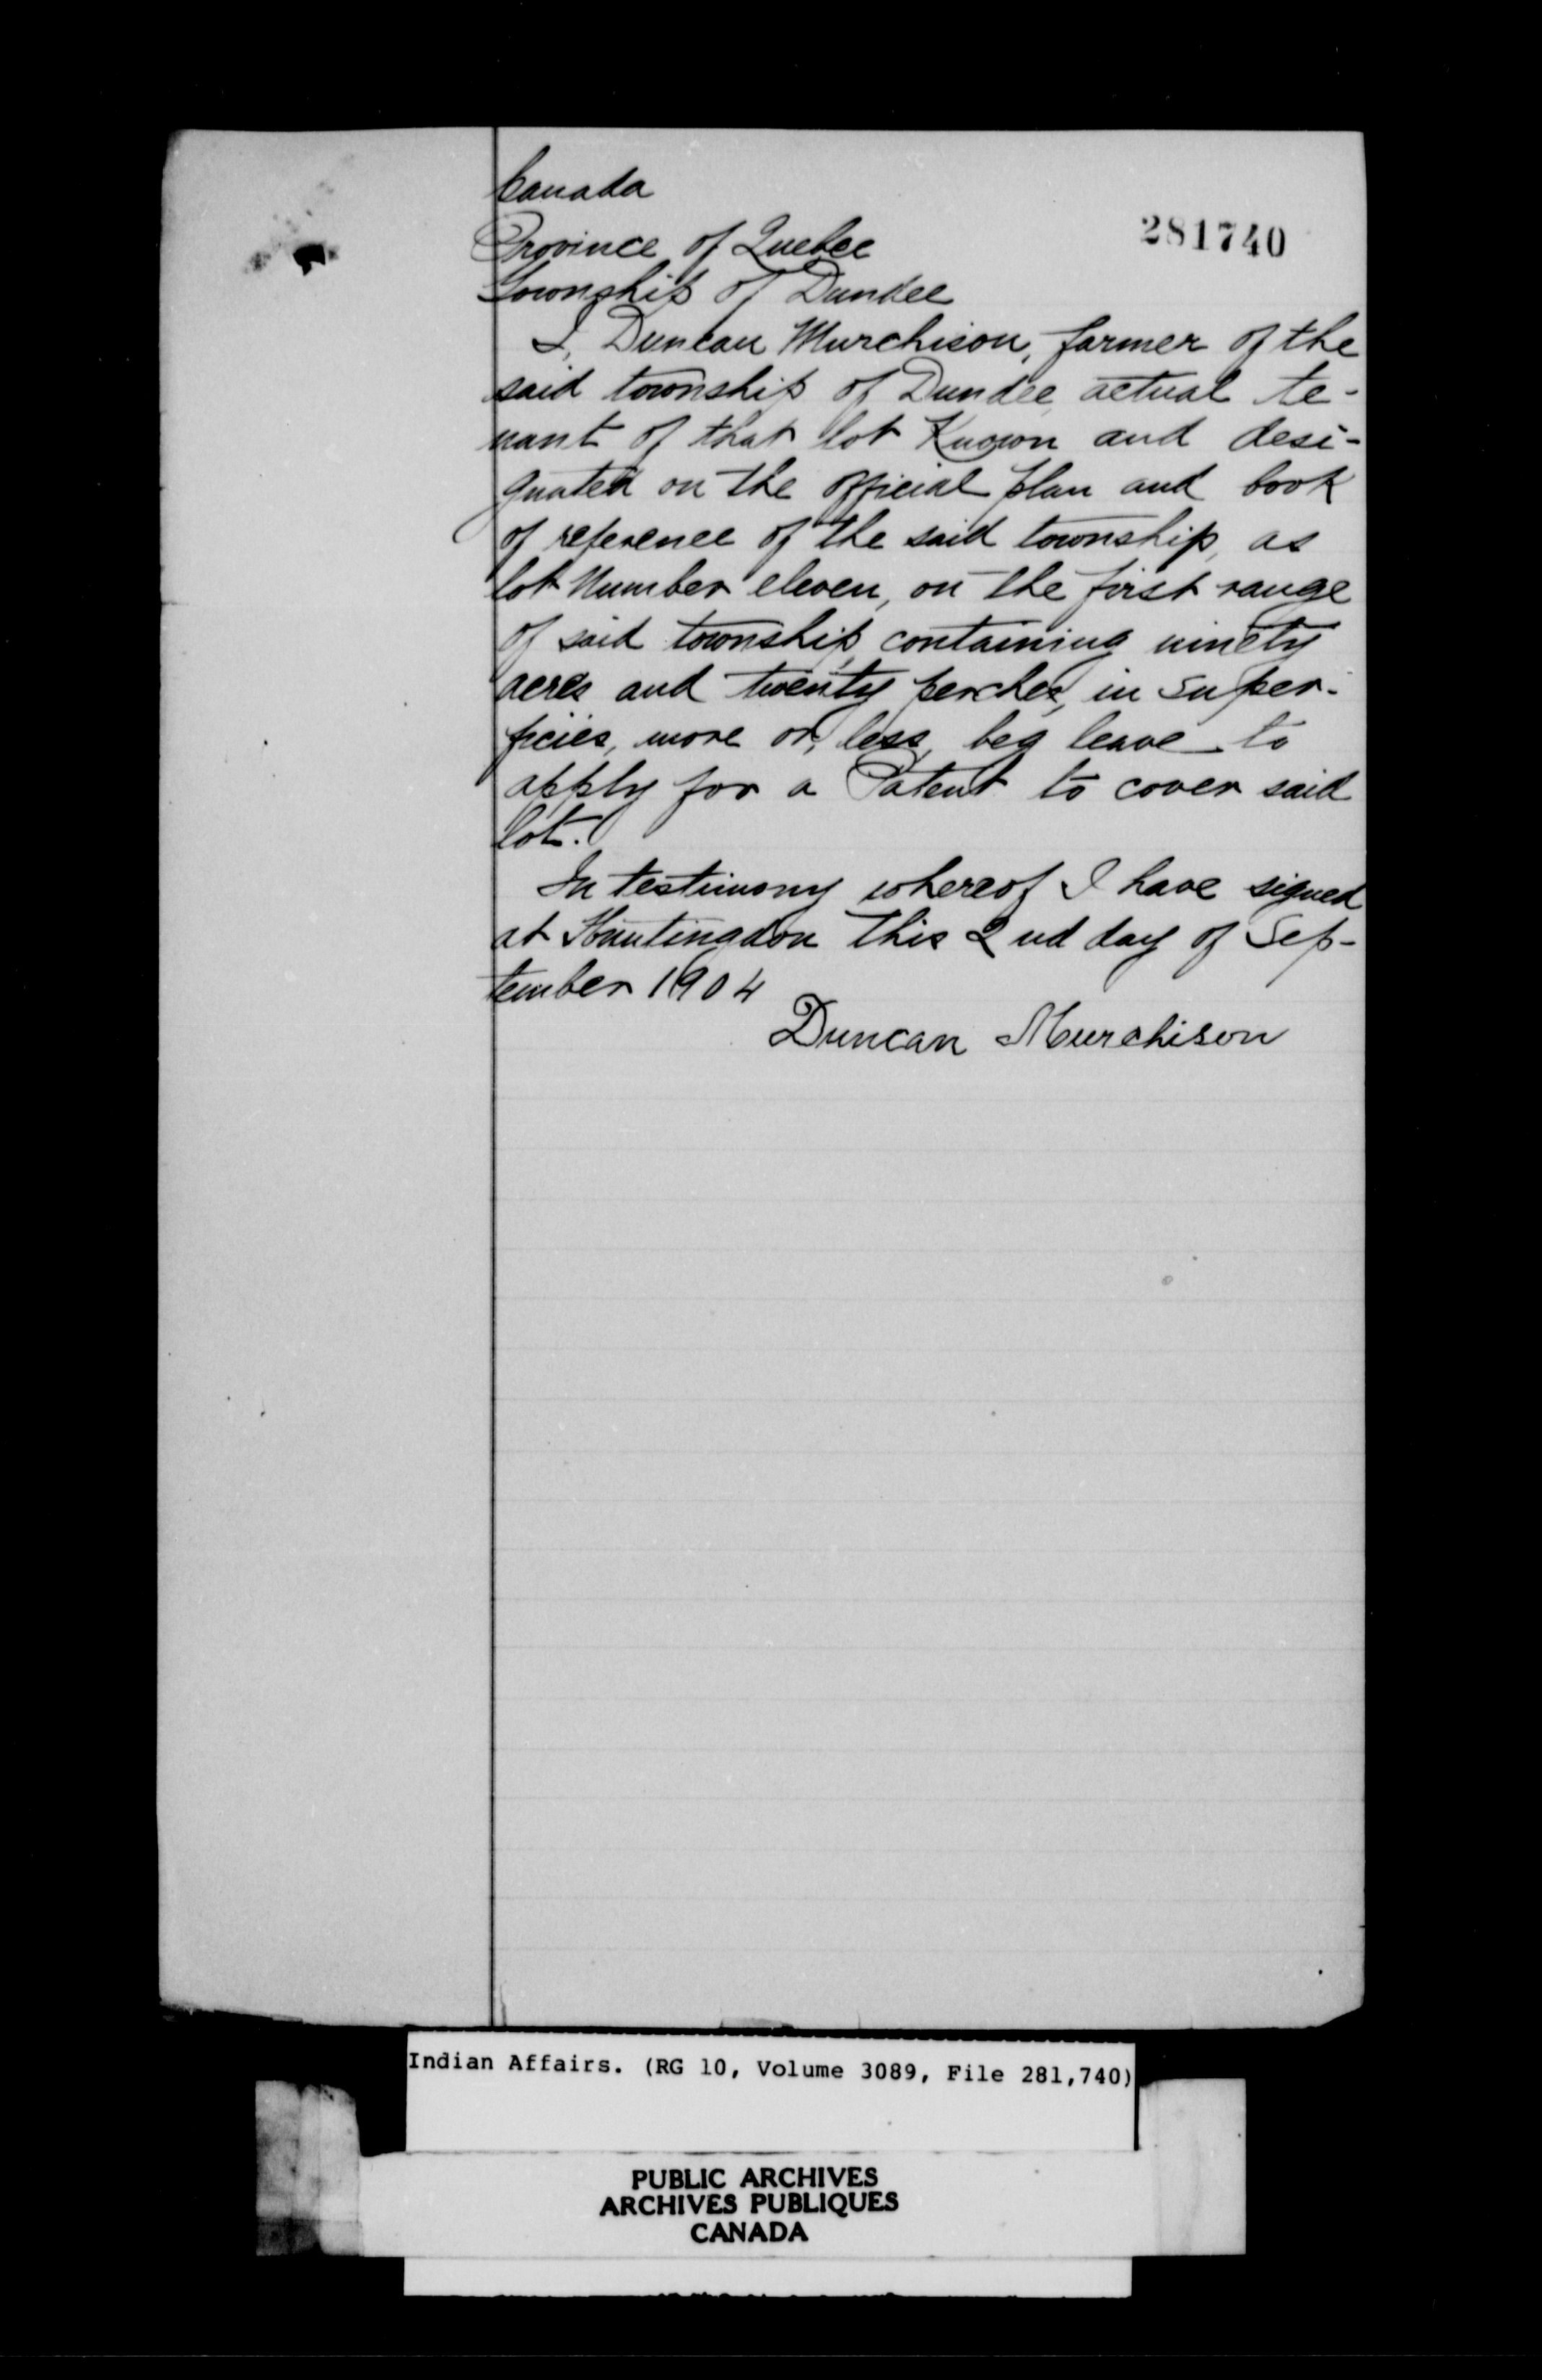 Canada
281740
Province of Quebec
Township of Dundee
I, Duncan Murchison, farmer of the
said township of Dundee, actual te-
nant of that lot Known and desi-
gnated on the official plan and book
of reference of the said township, as
lot Number eleven, on the first range
of said township, containing ninety
acres and twenty perches, in super-
ficies, more or, less, beg leave to
apply for a Patent to cover said
lot.
In testimony whereof I have signed
at Huntingdon this 2nd day of Sep-
tember 1904
Duncan Murchison
Indian Affairs. (RG 10, Volume 3089, File 281,740)
PUBLIC ARCHIVES
ARCHIVES PUBLIQUES
CANADA